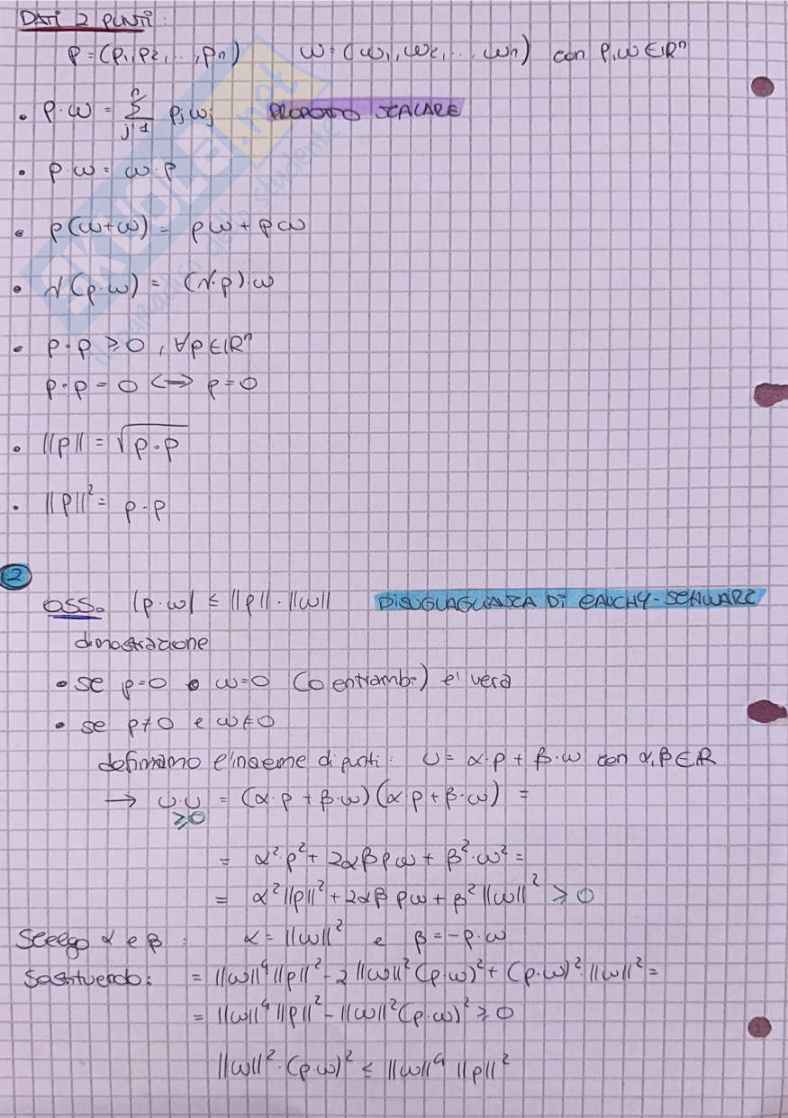 DATI 2 PUNTI:
p=(p₁,p₂,...,pₙ) ω=(ω₁,ω₂,...ωₙ) con p,ω∈ℝⁿ
• p·ω = Σⱼ₌₁ⁿ pⱼωⱼ PRODOTTO SCALARE
• p·ω = ω·p
• p(ω+ω) = pω + pω
• (p·ω) = (·p)·ω
• p·p ≥ 0, ∀p∈ℝⁿ
p·p = 0 <-> p=0
• ||p|| = √p·p
• ||p||² = p·p
2
OSS. |p·ω| ≤ ||p||·||ω|| DISUGUAGLIANZA DI CAUCHY-SCHWARZ
dimostrazione
• se p=0 o ω=0 (o entrambi) e' vera
• se p≠0 e ω≠0
definiamo l'insieme di punti: υ = α·p + β·ω con α,β∈ℝ
→ υ·υ = (α·p + β·ω)(α·p + β·ω) =
≥0
= α²·p² + 2αβpω + β²·ω² =
= α²||p||² + 2αβ pω + β²||ω||² ≥ 0
Scelgo α e β: α = ||ω||² e β = -p·ω
Sostituendo: = ||ω||⁴||p||² - 2||ω||²(p·ω)² + (p·ω)²·||ω||² =
= ||ω||⁴||p||² - ||ω||²(p·ω)² ≥ 0
||ω||²·(p·ω)² ≤ ||ω||⁴ ||p||²